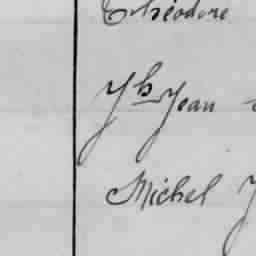 Théodore
Yh Jean
Michel